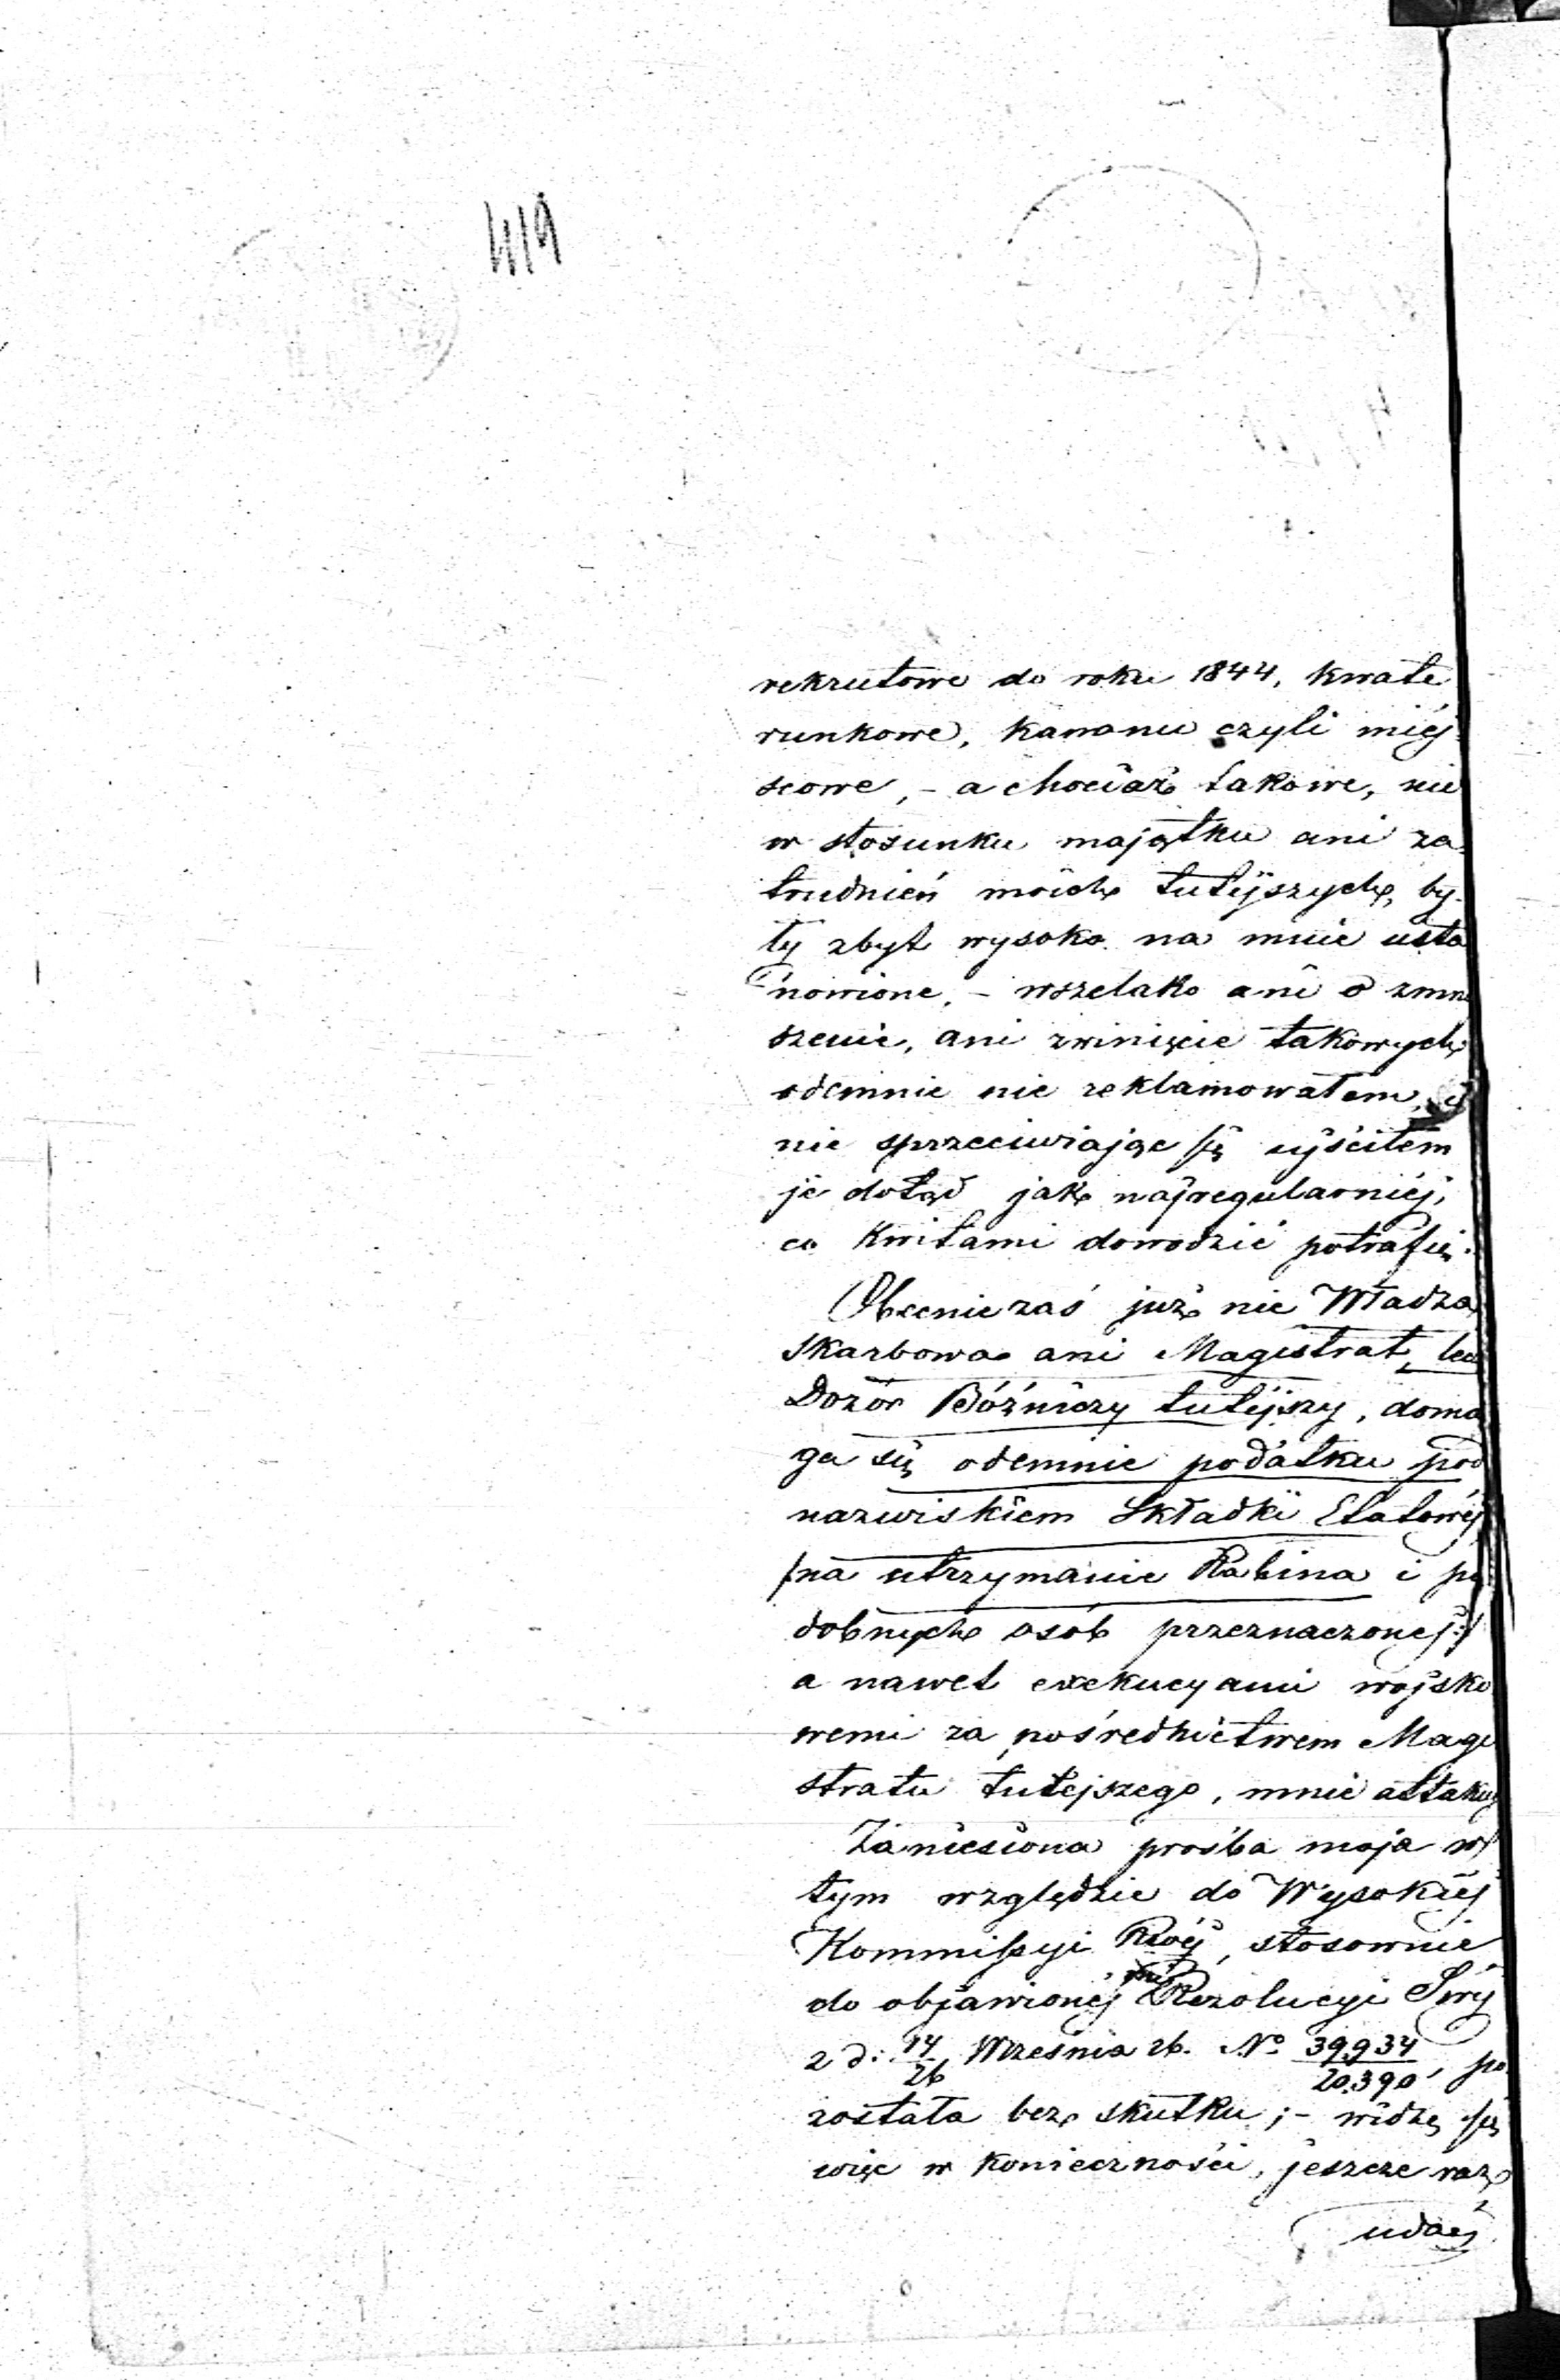 419
rekrutowe do roku 1844, kwate
runkowe, kanonu czyli miéj
scowe, - a chociaż takowe, nie
w stosunku majątku ani za
trudnień moich tutéjszych, by-
ły zbyt wysoko na mnie usta
nowione, - wszelako ani o zmn
szenie, ani zwinięcie takowych
odemnie nie reklamowałem, i
nie sprzeciwiając się uiściłem
je dotąd jak najregularniéj,
co kwitami dowodzić potrafię.
Obecnie zaś już nie Władza
Skarbowa ani Magistrat, lecz
Dozór Bóźniczy tutéjszy, doma
ga się odemnie podatku pod
nazwiskiem Składki Etatowéj
/na utrzymanie Rabina i po
dobnych osób przeznaczonej:/
a nawet exekucyami wojsko
wemi za pośrednictwem Magi
stratu tutejszego, mnie attakuj
Zaniesiona prośba moja w
tym względzie do Wysokiéj
Kommissyi Rwéj, stosownie
do objawionéj mi Rezolucyi
z d: 14/26 Września rb. No 39,934/20,390, po
została bez skutku; - widzę się
więc w konieczności, jeszcze raz
udać